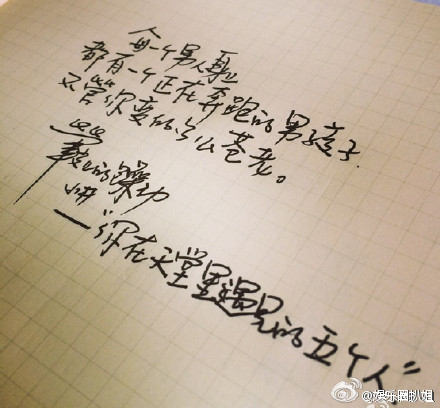 每一个男人裏
都有一个正在奔跑的男孩子
不管你变的多么苍老。
的躁动
—"你在天堂里遇见的五个人"
@娱乐圈扒姐